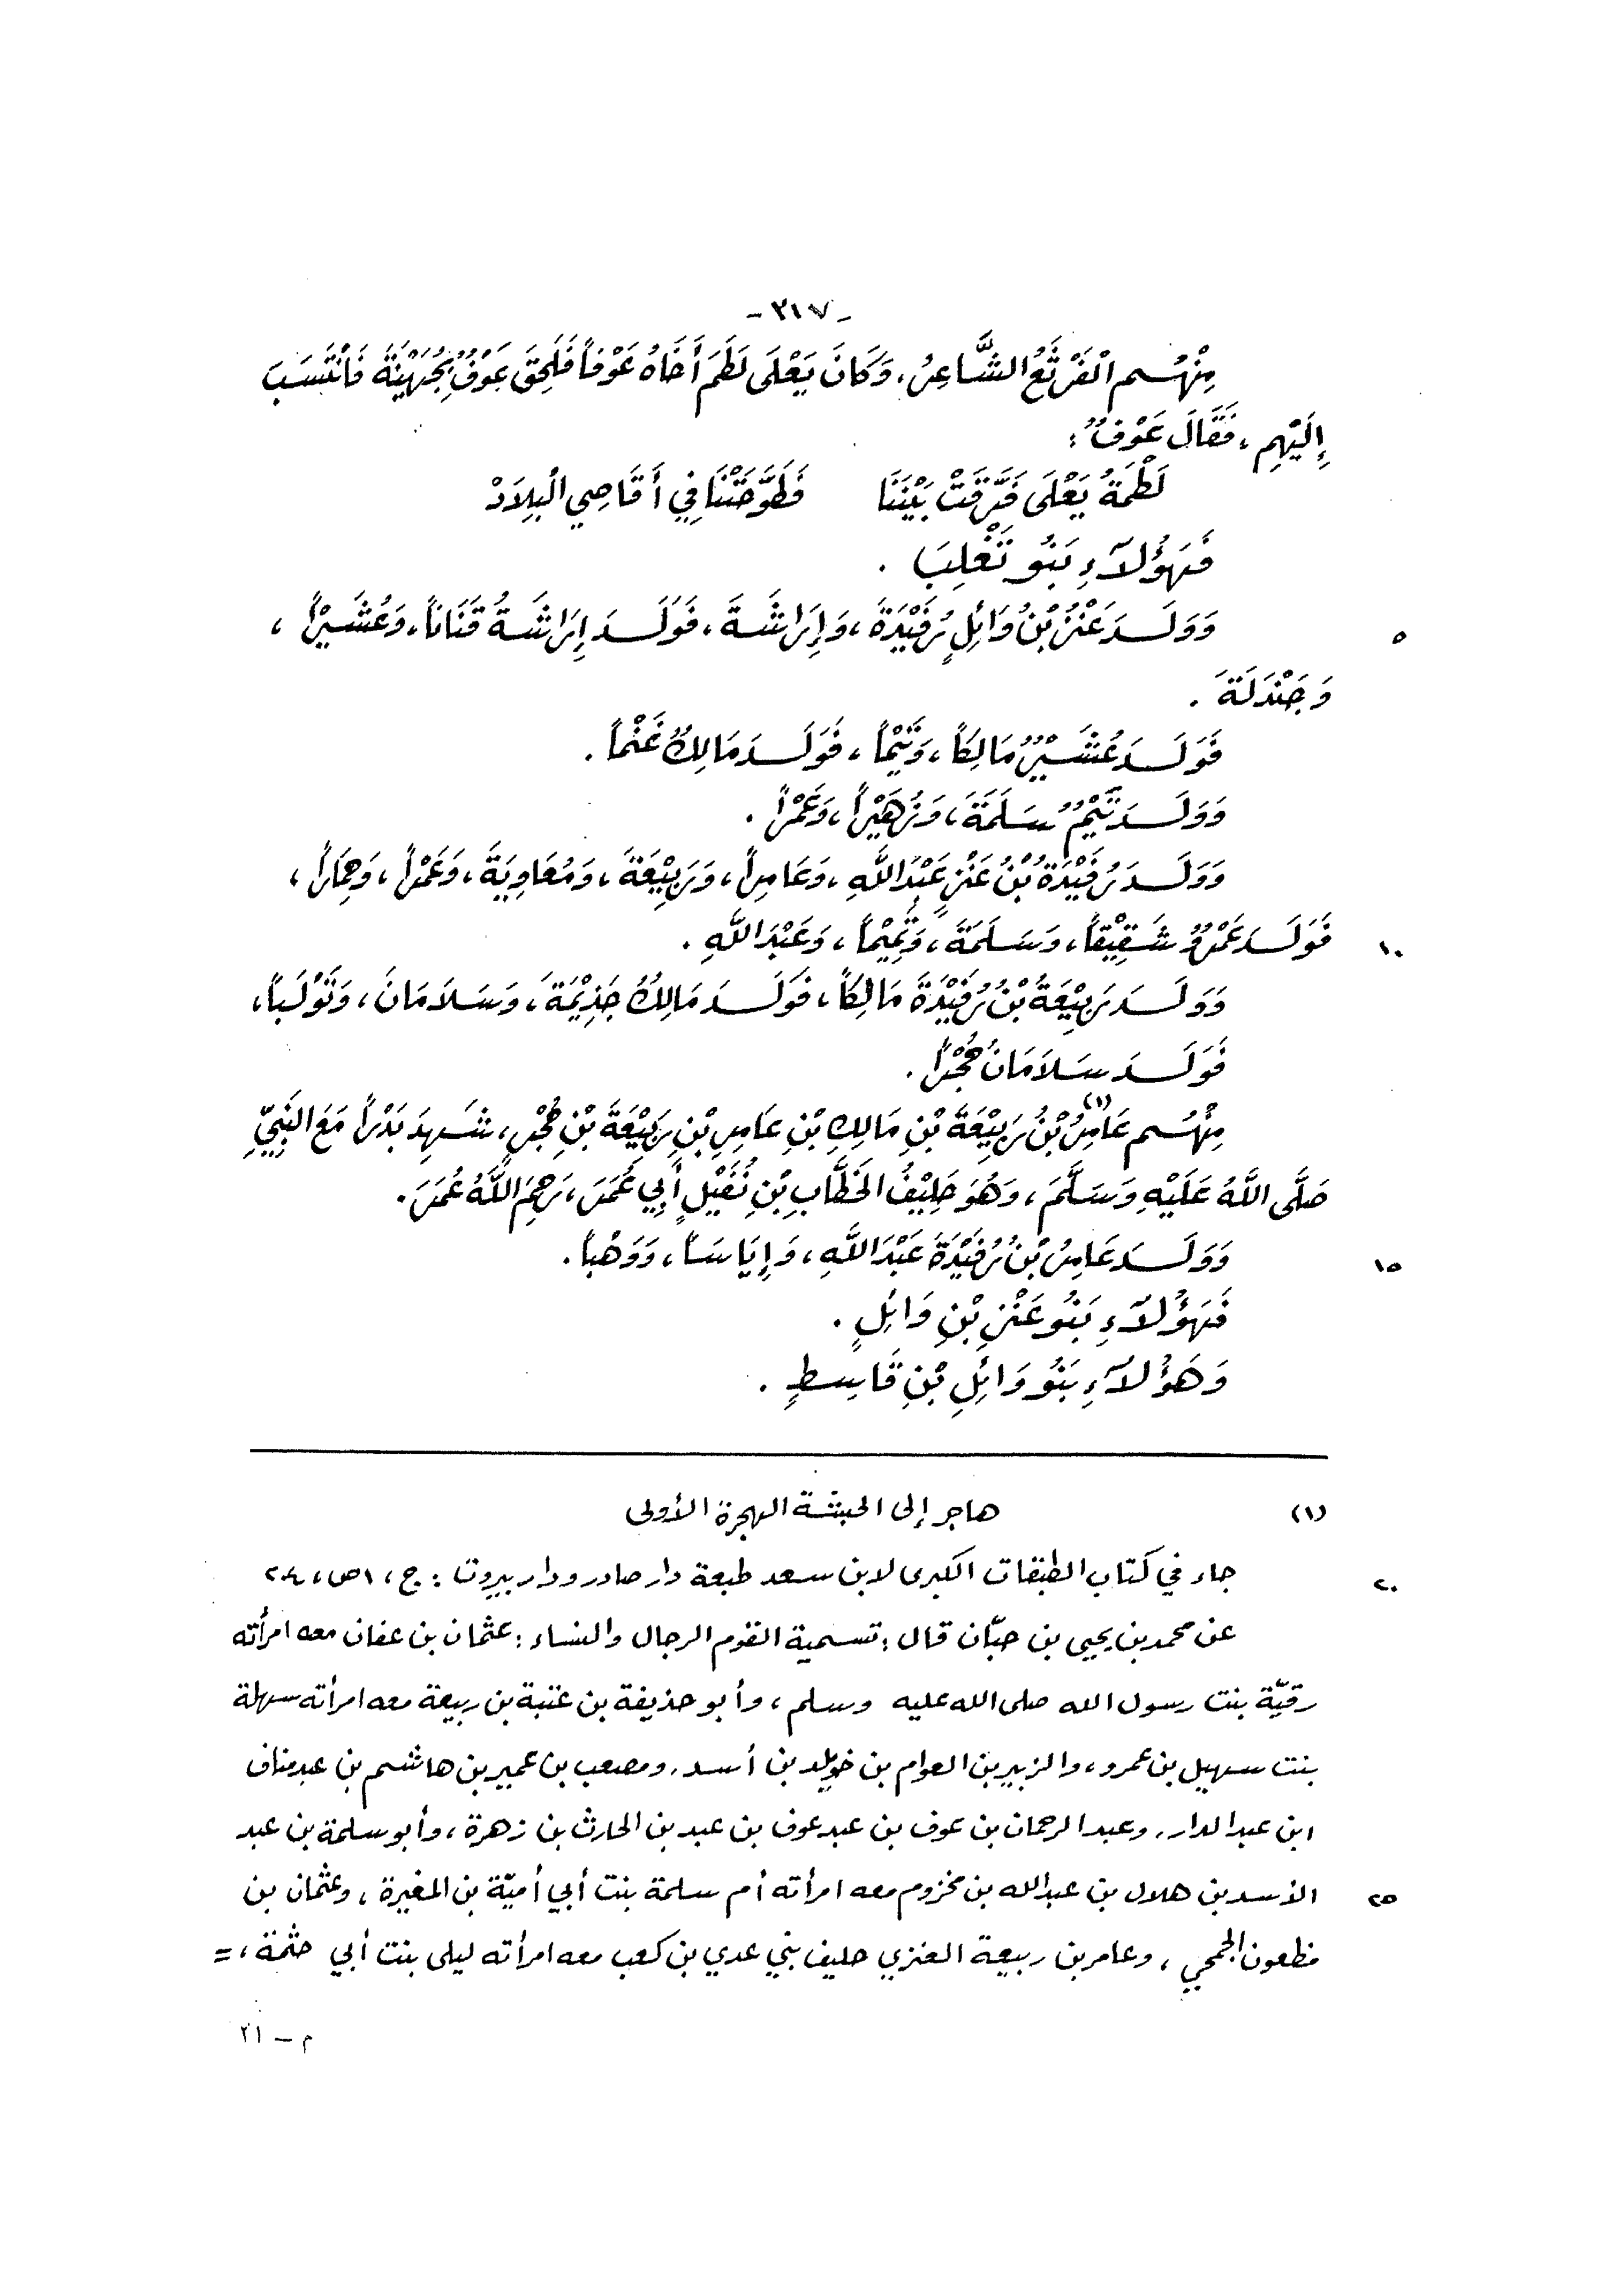 - ٣١٧ -
مِنْهُم الْفَرْثَعُ الشَّاعِرُ، وَكَانَ يَعْلَى لَطَمَ أَخَاهُ عَوْفاً فَلَحِقَ عَوْفٌ بِجُهَيْنَةَ فَانْتَسَبَ
إِلَيْهِم، فَقَالَ عَوْفٌ :
لَطْمَةُ يَعْلَى فَرَّقَتْ بَيْنَنَا فَطَوَّحَتْنَا فِي أَقَاصِي الْبِلَادْ
فَهَؤُلَآءِ بَنُو تَغْلِبَ .
٥ وَوَلَدَ عَنْزُ بْنُ وَائِلٍ رُفَيْدَةَ، وَإِرَاشَةَ، فَوَلَدَ إِرَاشَةُ قَنَاناً، وَعُشَيْراً،
وَجَنْدَلَةَ .
فَوَلَدَ عُشَيْرٌ مَالِكاً، وَتَيْماً، فَوَلَدَ مَالِكٌ غَنْماً .
وَوَلَدَ تَيْمٌ سَلَمَةَ، وَزُهَيْراً، وَعَمْراً .
وَوَلَدَ رُفَيْدَةُ بْنُ عَنْزٍ عَبْدَ اللَّهِ، وَعَامِراً، وَرَبِيْعَةَ، وَمُعَاوِيَةَ، وَعَمْراً، وَحِمَاراً،
١٠ فَوَلَدَ عَمْرٌو شَقِيْقاً، وَسَلَمَةَ، وَتَمِيْماً، وَعَبْدَ اللَّهِ .
وَوَلَدَ رَبِيْعَةُ بْنُ رُفَيْدَةَ مَالِكاً، فَوَلَدَ مَالِكٌ جَذِيْمَةَ، وَسَلَامَانَ، وَتَوْلَباً،
فَوَلَدَ سَلَامَانُ حُجْراً .
مِنْهُم عَامِرُ (١) بْنُ رَبِيْعَةَ بْنِ مَالِكِ بْنِ عَامِرِ بْنِ رَبِيْعَةَ بْنِ حُجْرٍ، شَهِدَ بَدْراً مَعَ النَّبِيِّ
صَلَّى اللَّهُ عَلَيْهِ وَسَلَّمَ، وَهُوَ حَلِيْفُ الخَطَّابِ بْنِ نُفَيْلٍ أَبِي عُمَرَ، رَحِمَ اللَّهُ عُمَرَ .
١٥ وَوَلَدَ عَامِرُ بْنُ رُفَيْدَةَ عَبْدَ اللَّهِ، وَإِيَاسَاً، وَوَهْباً .
فَهَؤُلَآءِ بَنُو عَنْزِ بْنِ وَائِلٍ .
وَهَؤُلَآءِ بَنُو وَائِلِ بْنِ قَاسِطٍ .
(١) هاجر إلى الحبشة الهجرة الأولى
٢٠ جاء في كتاب الطبقات الكبرى لابن سعد طبعة دار صادر ودار بيروت : ج، ١ ص، ٢٠٤
عن محمد بن يحيى بن حبّان قال : تسمية القوم الرجال والنساء : عثمان بن عفان معه امرأته
رقيّة بنت رسول الله صلى الله عليه وسلم، وأبو حذيفة بن عتبة بن ربيعة معه امرأته سهلة
بنت سهيل بن عمرو، والزبير بن العوام بن خويلد بن أسد، ومصعب بن عمير بن هاشم بن عبد مناف
ابن عبد الدار، وعبد الرحمان بن عوف بن عبد عوف بن عبد بن الحارث بن زهرة، وأبو سلمة بن عبد
٢٥ الأسد بن هلال بن عبد الله بن مخزوم معه امرأته أم سلمة بنت أبي أميّة بن المغيرة، وعثمان بن
مظعون الجمحي، وعامر بن ربيعة العنزي حليف بني عدي بن كعب معه امرأته ليلى بنت أبي حثمة، =
م - ٢١